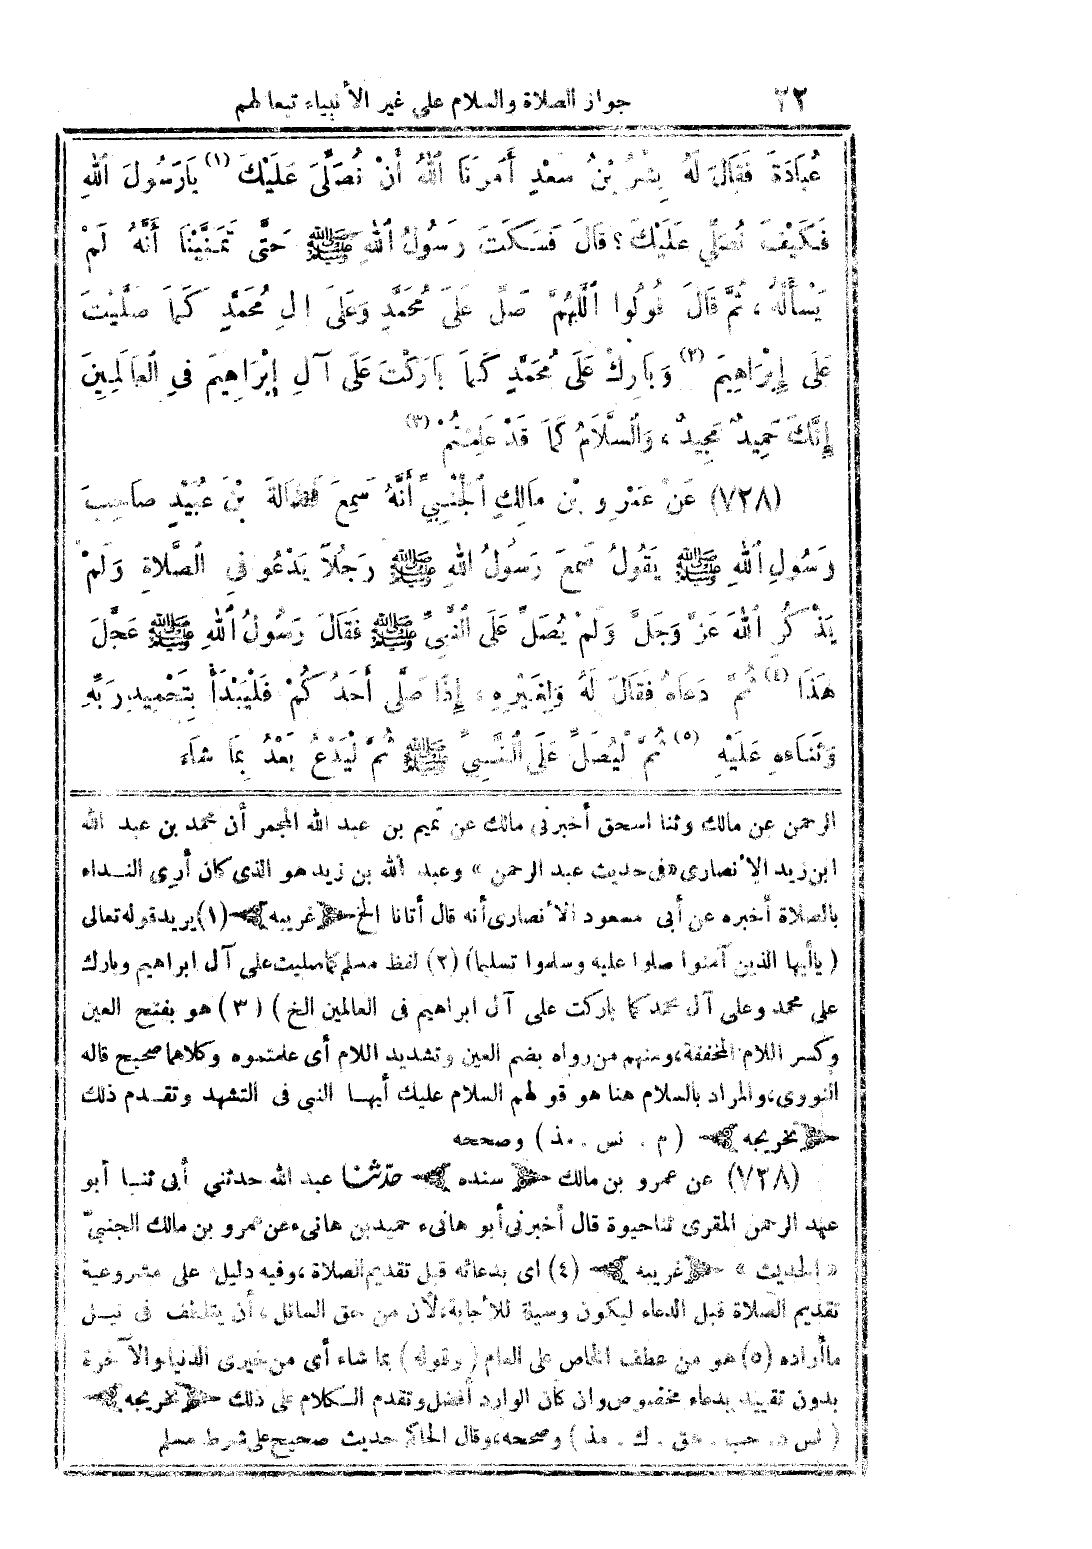 ٢٢ جواز الصلاة والسلام على غير الأنبياء تبعا لهم
عُبَادَةَ فَقَالَ لَهُ بِشْرُ بْنُ سَعْدٍ أَمَرَنَا اللهُ أَنْ نُصَلِّيَ عَلَيْكَ (١) يَارَسُولَ اللهِ
فَكَيْفَ نُصَلِّي عَلَيْكَ ؟ قَالَ فَسَكَتَ رَسُولُ اللهِ ﷺ حَتَّى تَمَنَّيْنَا أَنَّهُ لَمْ
يَسْأَلْهُ ، ثُمَّ قَالَ قُولُوا اللَّهُمَّ صَلِّ عَلَى مُحَمَّدٍ وَعَلَى الِ مُحَمَّدٍ كَمَا صَلَّيْتَ
عَلَى إِبْرَاهِيمَ (٢) وَبَارِكْ عَلَى مُحَمَّدٍ كَمَا بَارَكْتَ عَلَى آلِ إِبْرَاهِيمَ فِي الْعَالَمِينَ
إِنَّكَ حَمِيدٌ مَجِيدٌ ، وَالسَّلَامُ كَمَا قَدْ عَلِمْتُمْ (٣)
(٧٢٨) عَنْ عَمْرِو بْنِ مَالِكٍ الْجَنْبِيِّ أَنَّهُ سَمِعَ فَضَالَةَ بْنَ عُبَيْدٍ صَاحِبَ
رَسُولِ اللهِ ﷺ يَقُولُ سَمِعَ رَسُولُ اللهِ ﷺ رَجُلًا يَدْعُو فِي الصَّلَاةِ وَلَمْ
يَذْكُرِ اللهَ عَزَّ وَجَلَّ وَلَمْ يُصَلِّ عَلَى النَّبِيِّ ﷺ فَقَالَ رَسُولُ اللهِ ﷺ عَجِلَ
هَذَا (٤) ثُمَّ دَعَاهُ فَقَالَ لَهُ وَلِغَيْرِهِ ، إِذَا صَلَّى أَحَدُكُمْ فَلْيَبْدَأْ بِتَحْمِيدِ رَبِّهِ
وَثَنَاءِهِ عَلَيْهِ (٥) ثُمَّ لْيُصَلِّ عَلَى النَّبِيِّ ﷺ ثُمَّ لْيَدْعُ بَعْدُ بِمَا شَاءَ
الرحمن عن مالك وثنا اسحق أخبرنى مالك عن نعيم بن عبد الله المجمر أن محمد بن عبد الله
ابن زيد الأنصارى «فى حديث عبد الرحمن » وعبد الله بن زيد هو الذى كان أرى النداء
بالصلاة أخبره عن أبى مسعود الأنصارى أنه قال أتانا الخ ﴿غريبه﴾ (١) يريد قوله تعالى
( ياأيها الذين آمنوا صلوا عليه وسلموا تسليما) (٢) لفظ مسلم كماصليت على آل ابراهيم وبارك
على محمد وعلى آل محمد كما باركت على آل ابراهيم فى العالمين الخ ) ( ٣ ) هو بفتح العين
وكسر اللام المخففة، ومنهم من رواه بضم العين وتشديد اللام أى علمتموه وكلاهما صحيح قاله
النووى، والمراد بالسلام هنا هو قولهم السلام عليك أيها النبى فى التشهد وتقدم ذلك
﴿تخريجه﴾ ( م . نس . مذ ) وصححه
(٧٢٨) عن عمرو بن مالك ﴿ سنده ﴾ حدّثنا عبد الله حدثني أبى ثنا أبو
عبد الرحمن المقرى ثنا حيوة قال أخبرنى أبو هانىء حميد بن هانىء عن عمرو بن مالك الجنبىّ
« الحديث » ﴿غريبه ﴾ (٤) اى بدعائه قبل تقديم الصلاة ، وفيه دليل على مشروعية
تقديم الصلاة قبل الدعاء ليكون وسيلة للأجابة، لأن من حق السائل ، أن يتلطف فى نيل
ماأراده (٥) هو من عطف الخاص على العام ( وقوله ) بما شاء أى من خيرى الدنيا والآخرة
بدون تقييد بدعاء مخصوص وان كان الوارد أفضل وتقدم الكلام على ذلك ﴿تخريجه﴾
( نس د . حب . هق . ك . مذ ) وصححه، وقال الحاكم حديث صحيح على شرط مسلم